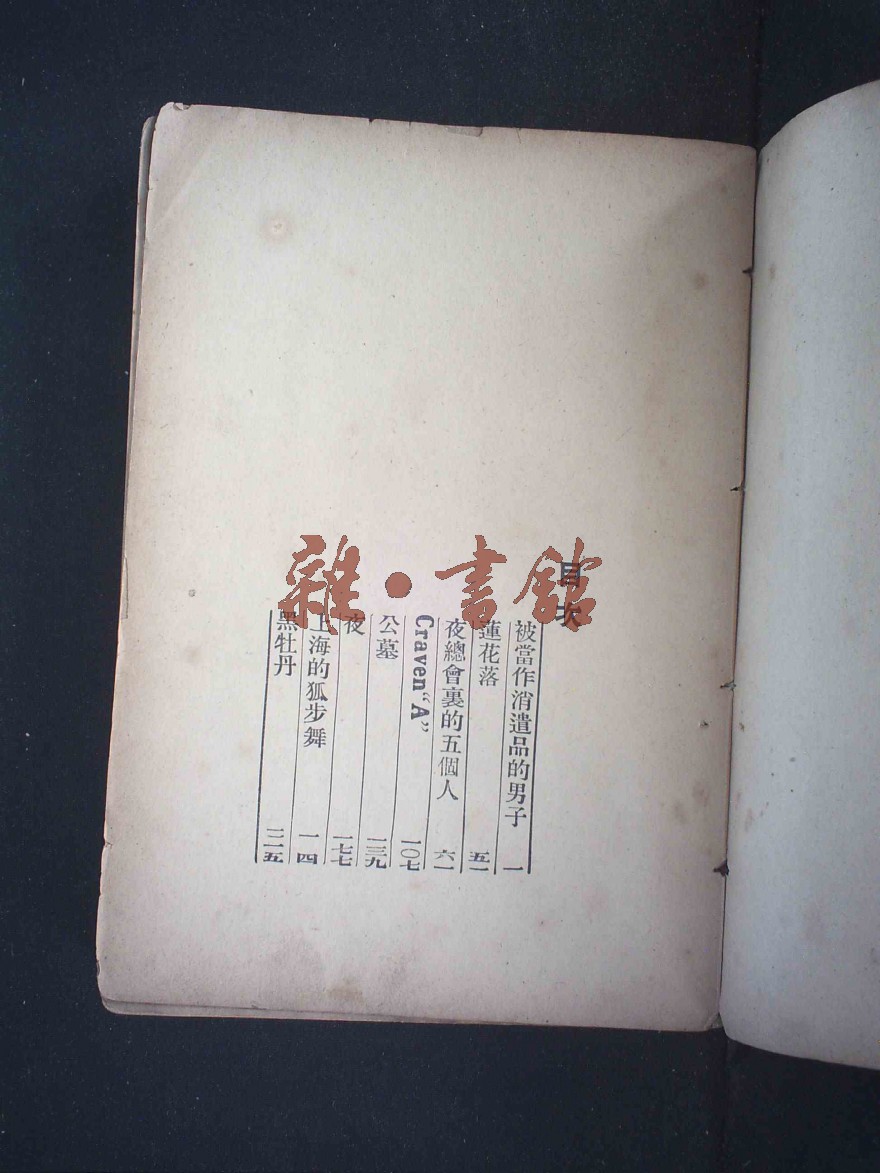 目次
被當作消遣品的男子 一
蓮花落 五一
夜總會裏的五個人 六一
Craven“A” 一〇七
公墓 一三九
夜 一七七
上海的狐步舞
黑牡丹 二一五
雜•書館